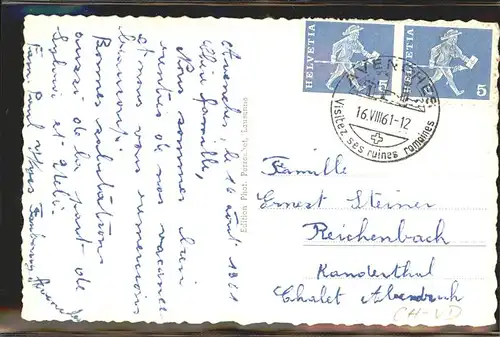 Avenches, le 16 août 1961
Chère famille,
Nous sommes bien
rentrés de nos vacances
et nous vous remercions
beaucoup.
Bonnes salutations
aussi de la part de
Sylvie et
Fam. Paul
Edition Phot. Perrochet, Lausanne
HELVETIA 5
HELVETIA 5
AVENCHES
16.VIII 61-12
Visitez ses ruines romaines
Famille
Ernest Steiner
Reichenbach
Kanderthal
Chalet
CH-VD